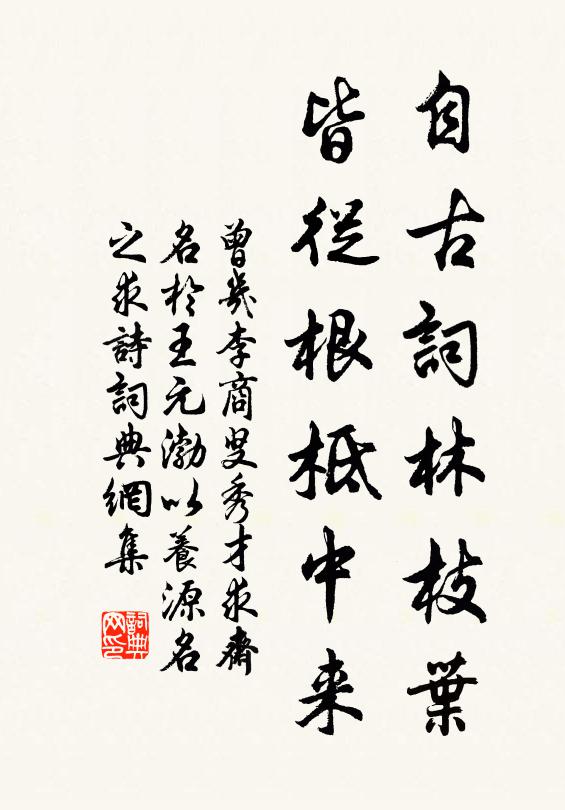 自古詞林枝葉
皆從根柢中来
曾幾李商叟秀才求齋
名於王元渤以養源名
之求詩詞典網集
詞典
网印